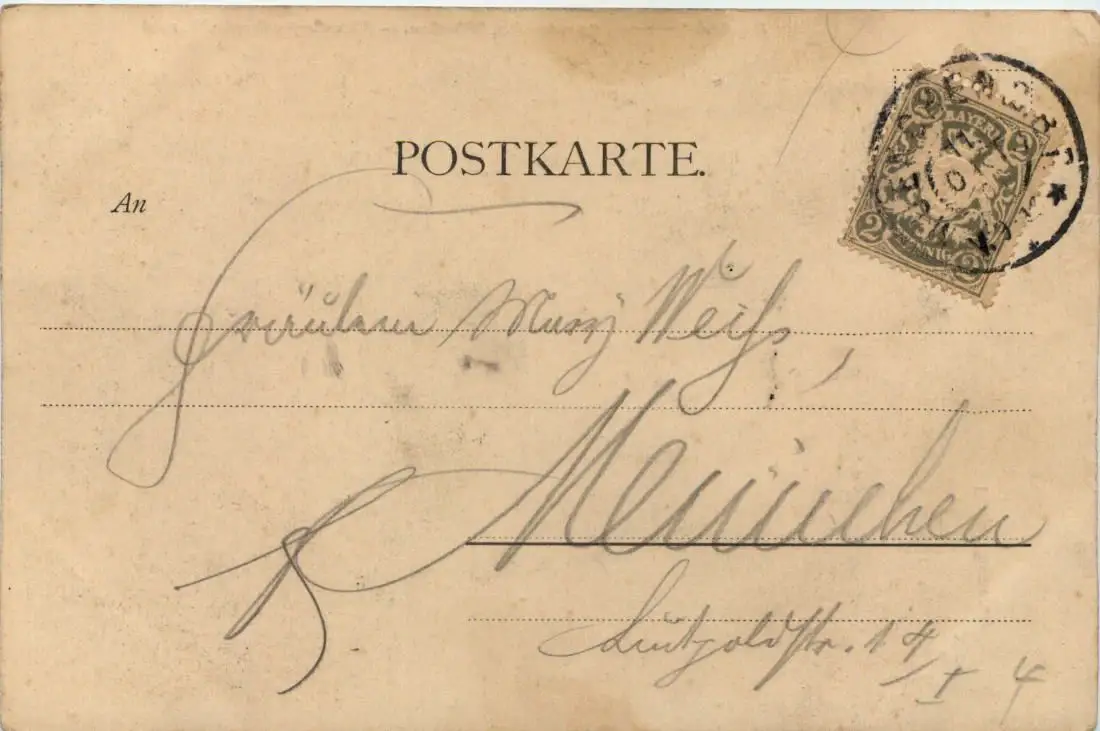 POSTKARTE.
An
Fräulein Mary Weiss,
München
Luitpoldstr. 14/I 4
BAYERN
2 2
2 PFENNIG 2